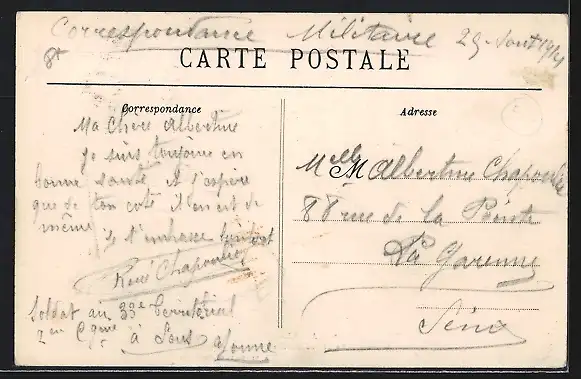 Correspondance Militaire 29 Aout 1914
CARTE POSTALE
Correspondance
Adresse
Ma Chère Albertine
Je suis toujours en
bonne santé et j'espère
que de ton coté il en est de
même
Je t'embrasse
René Chaponnier
Soldat au 33e Territorial
2em Cgnie
à Sens Yonne
Melle Albertine
88 rue de la Pointe
La Garenne
Seine